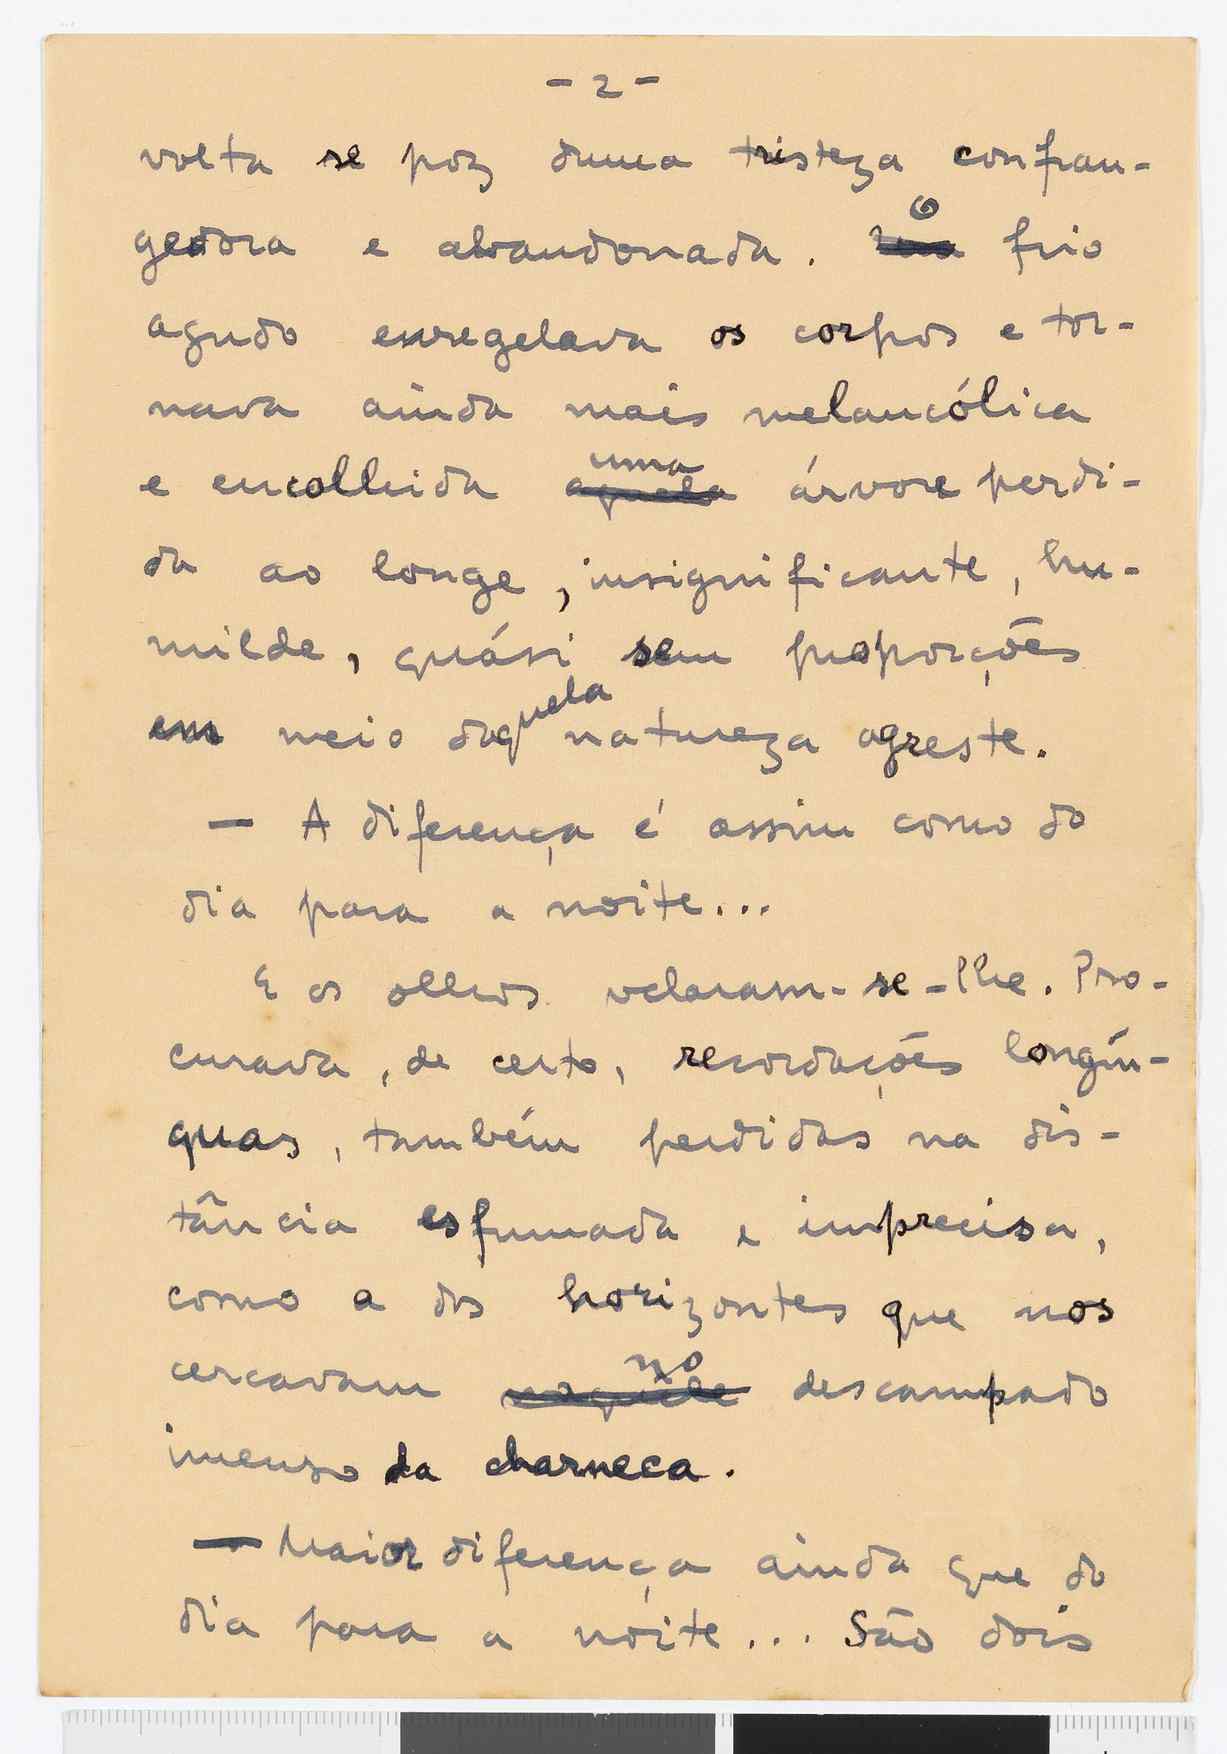 - 2 -
volta se poz duma tristeza confran-
gedora e abandonada. O frio
agudo enregelava os corpos e tor-
nava ainda mais melancólica
e encolhida uma árvore perdi-
da ao longe, insignificante, hu-
milde, quási sem proporções
em meio daquela natureza agreste.
— A diferença é assim como do
dia para a noite...
E os olhos velaram-se-lhe. Pro-
curava, de certo, recordações longín-
quas, também perdidas na dis-
tância esfumada e imprecisa,
como a dos horizontes que nos
cercavam no descampado
imenso da charneca.
— Maior diferença ainda que do
dia para a noite... São dois